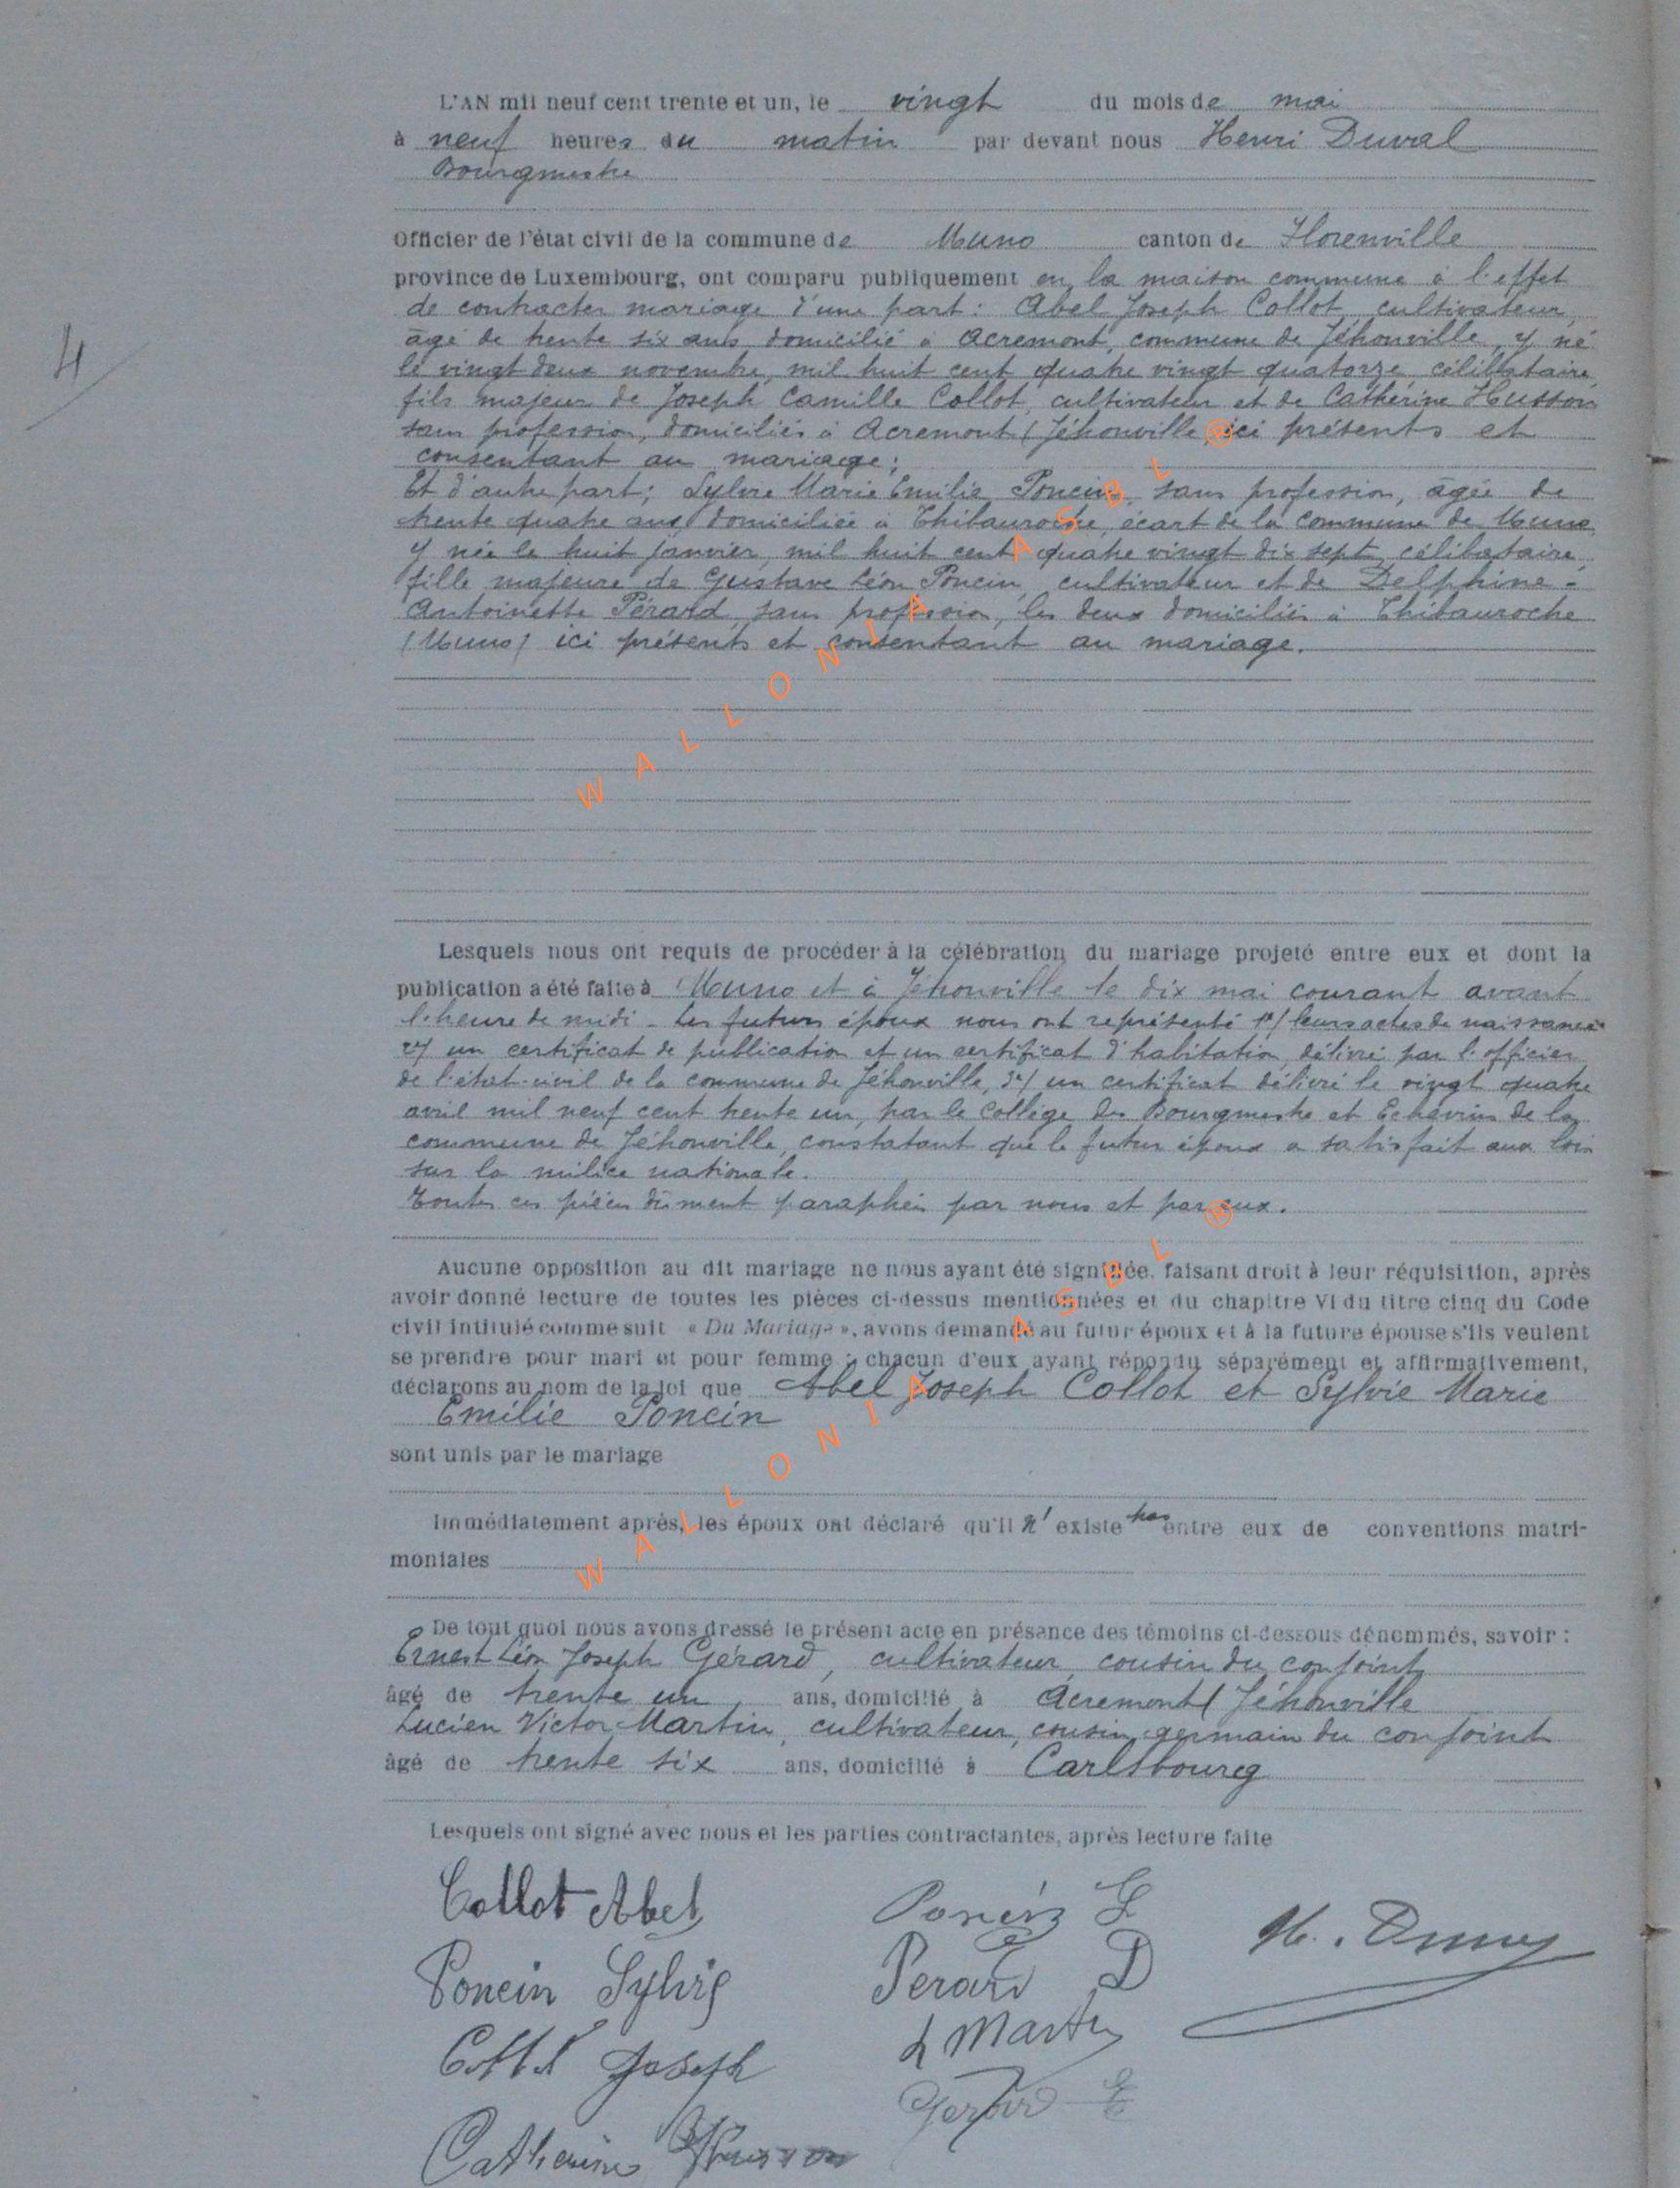 L'AN mil neuf cent trente et un, le vingt du mois de mai
à neuf heures du matin par devant nous Henri Duval
Bourgmestre
Officier de l'état civil de la commune de Muno canton de Florenville
province de Luxembourg, ont comparu publiquement en la maison commune à l'effet
de contracter mariage d'une part : Abel Joseph Collot, cultivateur,
âgé de trente six ans domicilié à Acremont, commune de Jéhonville, y né
le vingt deux novembre, mil huit cent quatre vingt quatorze, célibataire,
4
fils majeur de Joseph Camille Collot, cultivateur et de Catherine Husson
sans profession, domiciliés à Acremont (Jéhonville) ici présents et
consentant au mariage ;
Et d'autre part ; Sylvie Marie Emilie Poncin, sans profession, âgée de
trente quatre ans, domiciliée à Thibauroche, écart de la commune de Muno,
y née le huit janvier, mil huit cent quatre vingt dix sept, célibataire,
fille majeure de Gustave Léon Poncin, cultivateur et de Delphine -
Antoinette Pérard, sans profession, les deux domiciliés à Thibauroche
(Muno) ici présents et consentant au mariage.
Lesquels nous ont requis de procéder à la célébration du mariage projeté entre eux et dont la
publication a été faite à Muno et à Jéhonville le dix mai courant avant
l'heure de midi - Les futurs époux nous ont représenté 1°/ leurs actes de naissance
2°/ un certificat de publication et un certificat d'habitation, délivré par l'officier
de l'état-civil de la commune de Jéhonville, 3°/ un certificat délivré le vingt quatre
avril mil neuf cent trente un, par le Collège des Bourgmestre et Echevins de la
commune de Jéhonville, constatant que le futur époux a satisfait aux lois
sur la milice nationale.
Toutes ces pièces dûment paraphées par nous et par eux.
Aucune opposition au dit mariage ne nous ayant été signifiée, faisant droit à leur réquisition, après
avoir donné lecture de toutes les pièces ci-dessus mentionnées et du chapitre VI du titre cinq du Code
civil intitulé comme suit « Du Mariage », avons demandé au futur époux et à la future épouse s'ils veulent
se prendre pour mari et pour femme ; chacun d'eux ayant répondu séparément et affirmativement,
déclarons au nom de la loi que Abel Joseph Collot et Sylvie Marie
Emilie Poncin
sont unis par le mariage
Immédiatement après, les époux ont déclaré qu'il n'existe pas entre eux de conventions matri-
moniales
De tout quoi nous avons dressé le présent acte en présance des témoins ci-dessous dénommés, savoir :
Ernest Léon Joseph Gérard, cultivateur, cousin du conjoint,
âgé de trente un, ans, domicilié à Acremont (Jéhonville
Lucien Victor Martin, cultivateur, cousin germain du conjoint
âgé de trente six ans, domicilié à Carlsbourg
Lesquels ont signé avec nous et les parties contractantes, après lecture faite
Collot Abel Poncin G
H. Duval
Poncin Sylvie Perard D
Collot Joseph L Martin
Gerard E
Catherine Husson
WALLONIA ASBL ®
WALLONIA ASBL ®